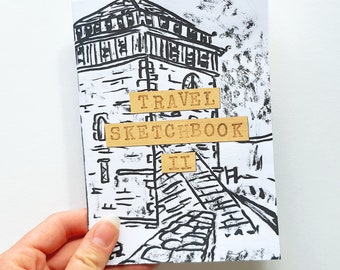 TRAVEL
SKETCHBOOK
II